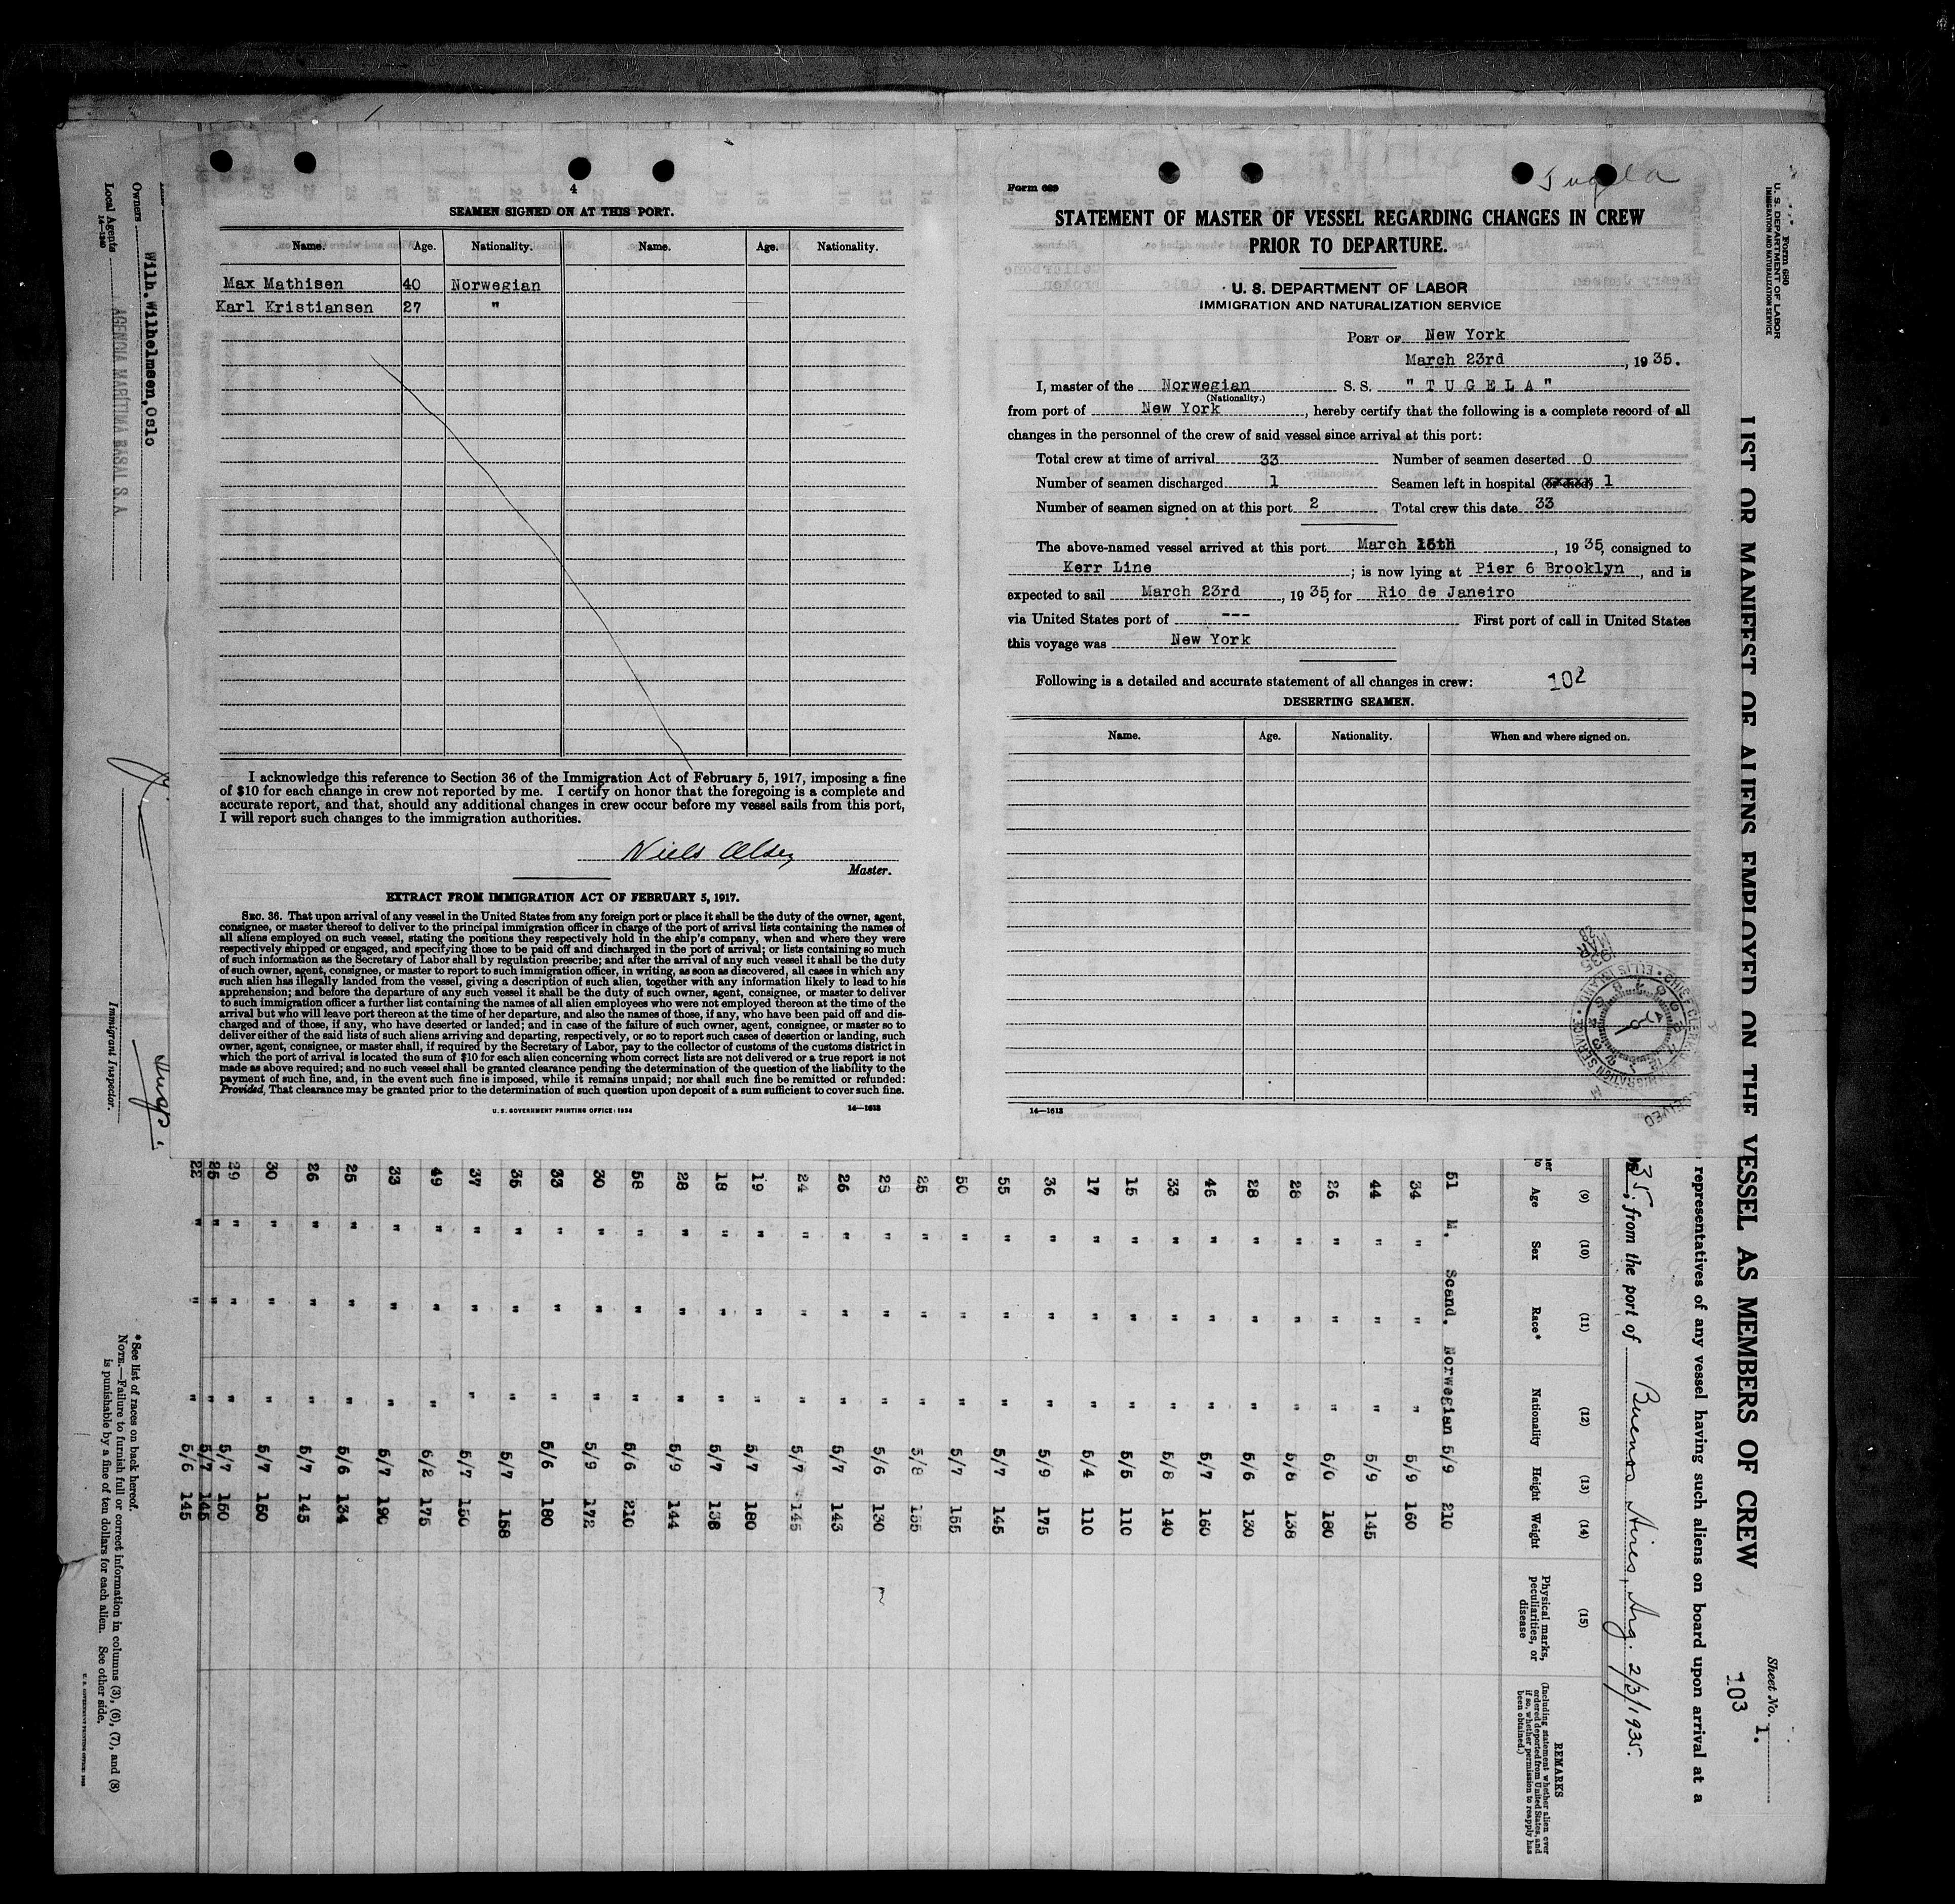 4
SEAMEN SIGNED ON AT THIS PORT.
Name. Age. Nationality. Name. Age. Nationality.
Max Mathisen 40 Norwegian
Karl Kristiansen 27 "
I acknowledge this reference to Section 36 of the Immigration Act of February 5, 1917, imposing a fine
of $10 for each change in crew not reported by me. I certify on honor that the foregoing is a complete and
accurate report, and that, should any additional changes in crew occur before my vessel sails from this port,
I will report such changes to the immigration authorities.
Niels Olsen
Master.
EXTRACT FROM IMMIGRATION ACT OF FEBRUARY 5, 1917.
SEC. 36. That upon arrival of any vessel in the United States from any foreign port or place it shall be the duty of the owner, agent,
consignee, or master thereof to deliver to the principal immigration officer in charge of the port of arrival lists containing the names of
all aliens employed on such vessel, stating the positions they respectively hold in the ship's company, when and where they were
respectively shipped or engaged, and specifying those to be paid off and discharged in the port of arrival; or lists containing so much
of such information as the Secretary of Labor shall by regulation prescribe; and after the arrival of any such vessel it shall be the duty
of such owner, agent, consignee, or master to report to such immigration officer, in writing, as soon as discovered, all cases in which any
such alien has illegally landed from the vessel, giving a description of such alien, together with any information likely to lead to his
apprehension; and before the departure of any such vessel it shall be the duty of such owner, agent, consignee, or master to deliver
to such immigration officer a further list containing the names of all alien employees who were not employed thereon at the time of the
arrival but who will leave port thereon at the time of her departure, and also the names of those, if any, who have been paid off and dis-
charged and of those, if any, who have deserted or landed; and in case of the failure of such owner, agent, consignee, or master so to
deliver either of the said lists of such aliens arriving and departing, respectively, or so to report such cases of desertion or landing, such
owner, agent, consignee, or master shall, if required by the Secretary of Labor, pay to the collector of customs of the customs district in
which the port of arrival is located the sum of $10 for each alien concerning whom correct lists are not delivered or a true report is not
made as above required; and no such vessel shall be granted clearance pending the determination of the question of the liability to the
payment of such fine, and, in the event such fine is imposed, while it remains unpaid; nor shall such fine be remitted or refunded:
Provided, That clearance may be granted prior to the determination of such question upon deposit of a sum sufficient to cover such fine.
U. S. GOVERNMENT PRINTING OFFICE: 1934 14—1613
Form 689
Tugela
STATEMENT OF MASTER OF VESSEL REGARDING CHANGES IN CREW
PRIOR TO DEPARTURE.
U. S. DEPARTMENT OF LABOR
IMMIGRATION AND NATURALIZATION SERVICE
PORT OF New York
March 23rd, 1935.
I, master of the Norwegian S. S. "TUGELA"
(Nationality.)
from port of New York, hereby certify that the following is a complete record of all
changes in the personnel of the crew of said vessel since arrival at this port:
Total crew at time of arrival 33 Number of seamen deserted 0
Number of seamen discharged 1 Seamen left in hospital (or died) 1
Number of seamen signed on at this port 2 Total crew this date 33
The above-named vessel arrived at this port March 15th, 1935, consigned to
Kerr Line; is now lying at Pier 6 Brooklyn, and is
expected to sail March 23rd, 1935, for Rio de Janeiro
via United States port of --- First port of call in United States
this voyage was New York
Following is a detailed and accurate statement of all changes in crew: 102
DESERTING SEAMEN.
Name. Age. Nationality. When and where signed on.
14—1613
Form 680
U. S. DEPARTMENT OF LABOR
IMMIGRATION AND NATURALIZATION SERVICE
Sheet No. 1.
103
LIST OR MANIFEST OF ALIENS EMPLOYED ON THE VESSEL AS MEMBERS OF CREW
representatives of any vessel having such aliens on board upon arrival at a
35, from the port of Buenos Aires, Arg. 2/3/1935.
(9) (10) (11) (12) (13) (14) (15)
Age Sex Race* Nationality Height Weight Physical marks, peculiarities, or disease
REMARKS
(Including statement whether alien ever
ordered deported from United States, and
if so, whether permission to reapply has
been obtained.)
51 M. Scand. Norwegian 5/9 210
34 " " " 5/9 160
44 " " " 5/9 145
26 " " " 6/0 180
28 " " " 5/8 138
28 " " " 5/6 130
46 " " " 5/7 160
33 " " " 5/8 140
15 " " " 5/5 110
17 " " " 5/4 110
36 " " " 5/9 175
55 " " " 5/7 145
50 " " " 5/7 155
25 " " " 5/8 155
25 " " " 5/6 130
26 " " " 5/7 143
24 " " " 5/7 145
19 " " " 5/7 180
18 " " " 5/7 138
28 " " " 5/9 144
58 " " " 5/6 210
30 " " " 5/9 172
33 " " " 5/6 180
35 " " " 5/7 158
37 " " " 5/7 150
49 " " " 6/2 175
33 " " " 5/7 190
25 " " " 5/6 134
26 " " " 5/7 145
30 " " " 5/7 150
29 " " " 5/7 150
25 " " " 5/7 145
22 " " " 5/6 145
*See list of races on back hereof.
NOTE.—Failure to furnish full or correct information in columns (3), (6), (7), and (8)
is punishable by a fine of ten dollars for each alien. See other side.
Owners Wilh. Wilhelmsen, Oslo
Local Agents AGENCIA MARÍTIMA RASAL S. A.
14—1240
Immigrant Inspector.